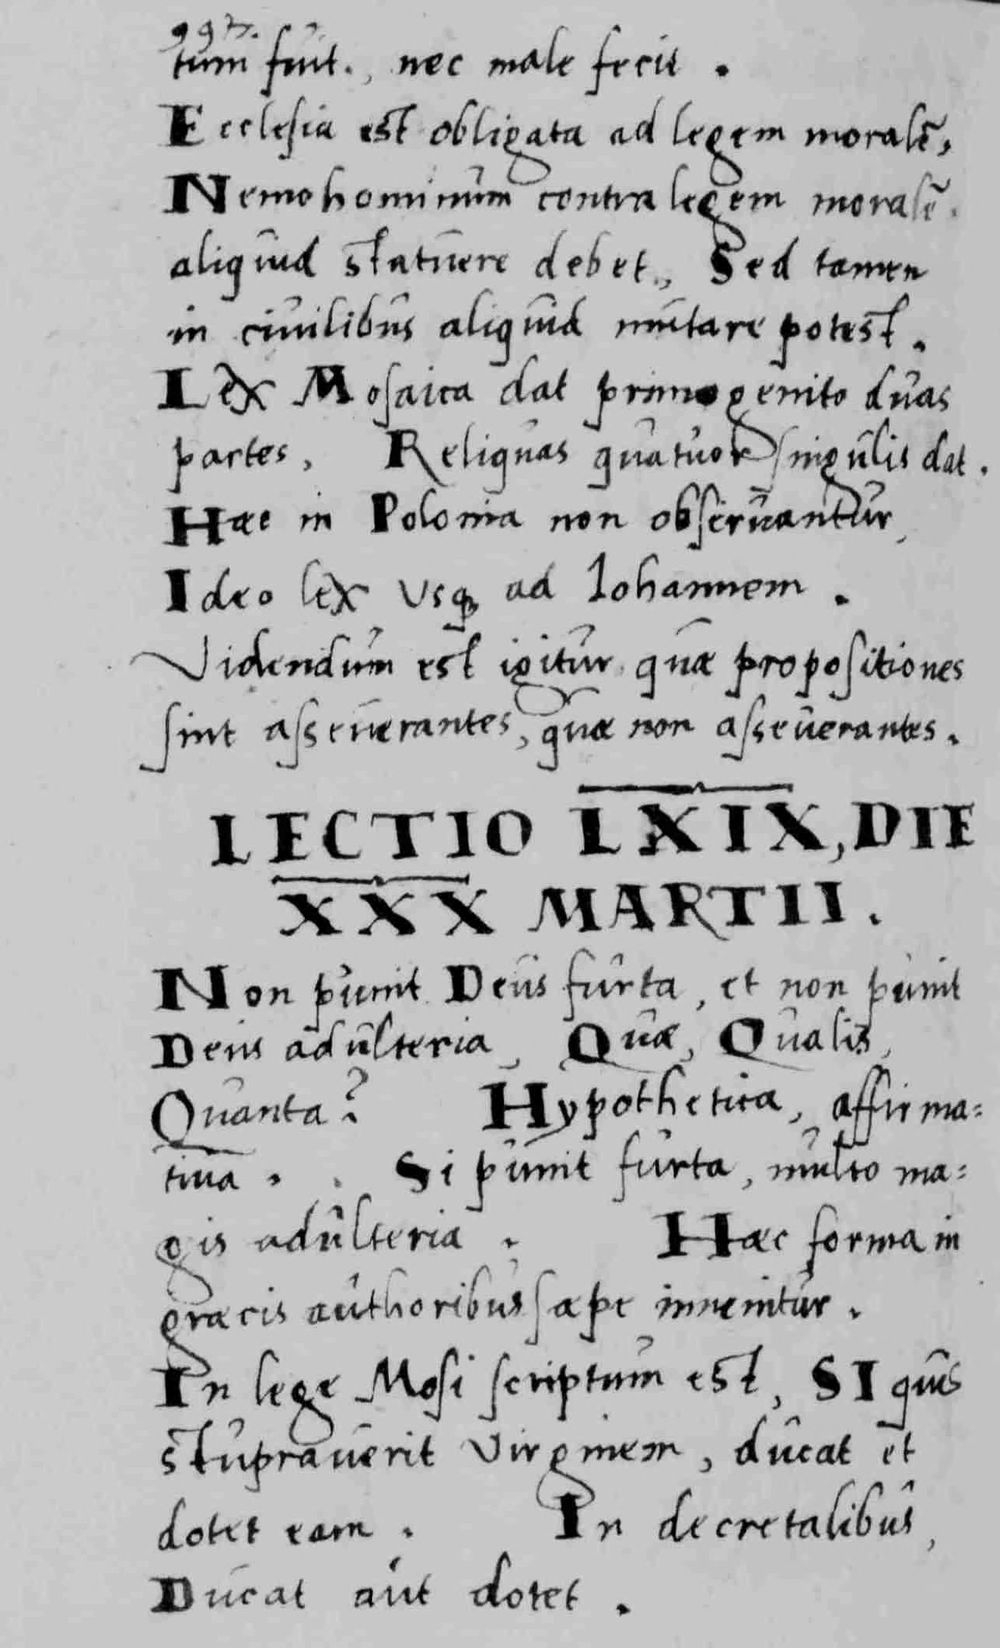 tum fuit., nec male fecit.
Ecclesia est obligata ad legem moralē,
Nemo hominum contra legem moralē.
aliquid statuere debet., Sed tamen
in ciuilibus aliquid mutare potest.
Lex Mosaica dat primogenito duas
partes, Reliquas quatuor singulis dat.
Hae in Polonia non obseruantur,
Ideo lex vsq₃ ad Iohannem.
Videndum est igitur quæ propositiones
sint asseuerantes, quæ non asseuerantes.
LECTIO LXIX, DIE
XXX MARTII.
Non punit Deus furta, et non punit
Deus adulteria, Quæ, Qualis,
Quanta? Hypothetica, affirma=
tiua. Si punit furta, multo ma=
gis adulteria. Hæc forma in
græcis authoribus sæpe inuenitur.
In lege Mosi scriptum est, SI quis
stuprauerit virginem, ducat et
dotet eam. In decretalibus,
Ducat aut dotet.